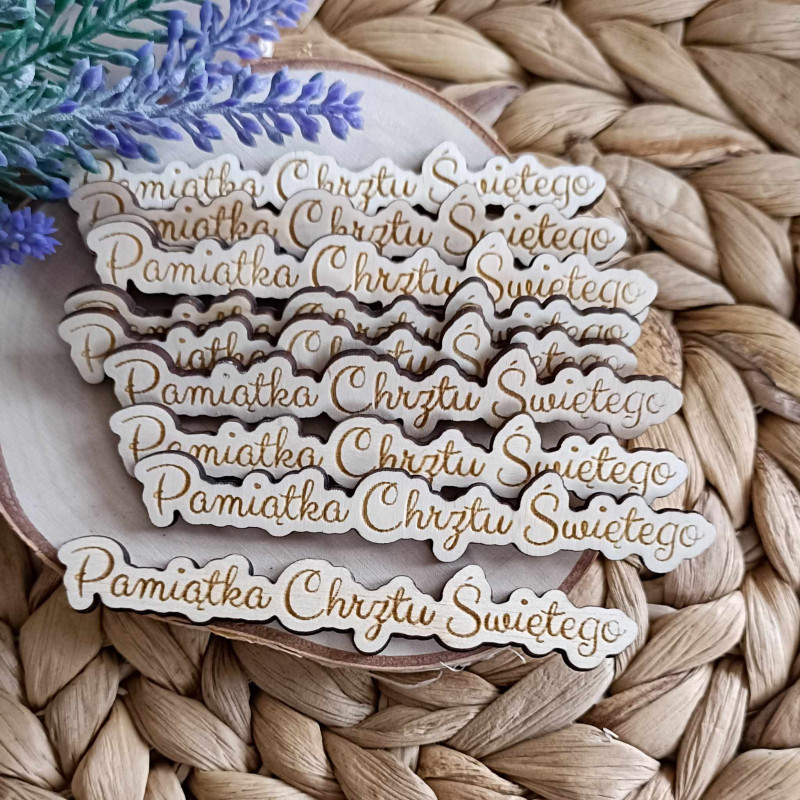 Pamiątka Chrztu Świętego
Pamiątka Chrztu Świętego
Pamiątka Chrztu Świętego
Pamiątka Chrztu Świętego
Pamiątka Chrztu Świętego
Pamiątka Chrztu Świętego
Pamiątka Chrztu Świętego
Pamiątka Chrztu Świętego
Pamiątka Chrztu Świętego